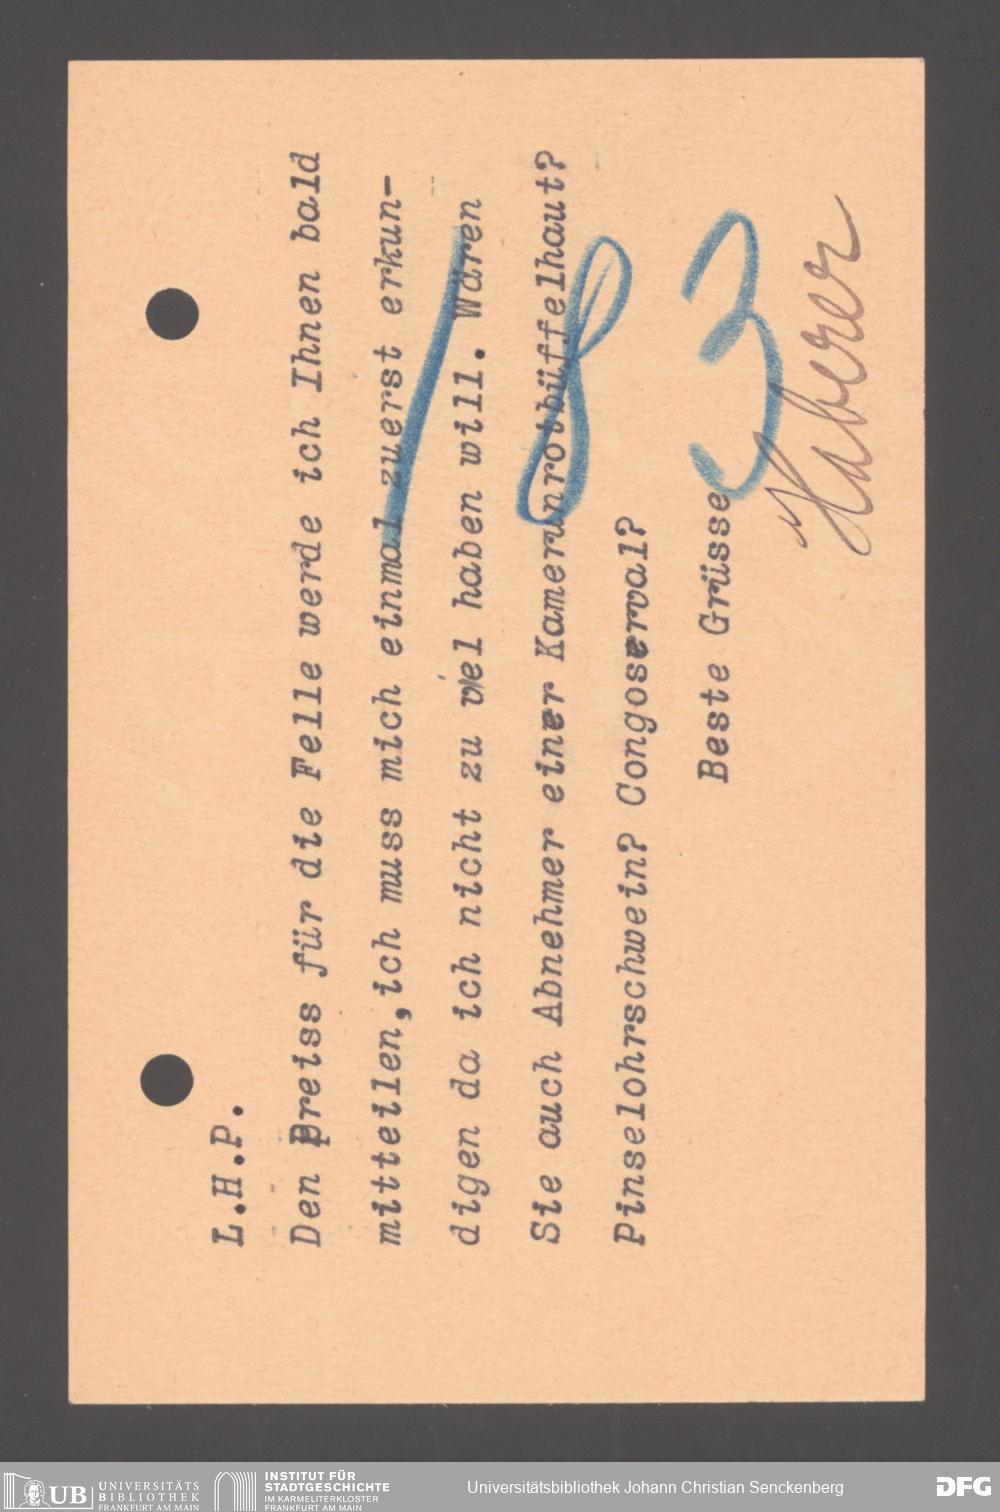 L.H.P.
Den Preiss für die Felle werde ich Ihnen bald
mitteilen,ich muss mich einmal zuerst erkun-
digen da ich nicht zu viel haben will. Wären
Sie auch Abnehmer einer Kamerunrotbüffelhaut?
Pinselohrschwein? Congoserval?
Beste Grüsse
Haberer
183
UB UNIVERSITÄTS
BIBLIOTHEK
FRANKFURT AM MAIN
INSTITUT FÜR
STADTGESCHICHTE
IM KARMELITERKLOSTER
FRANKFURT AM MAIN
Universitätsbibliothek Johann Christian Senckenberg
DFG